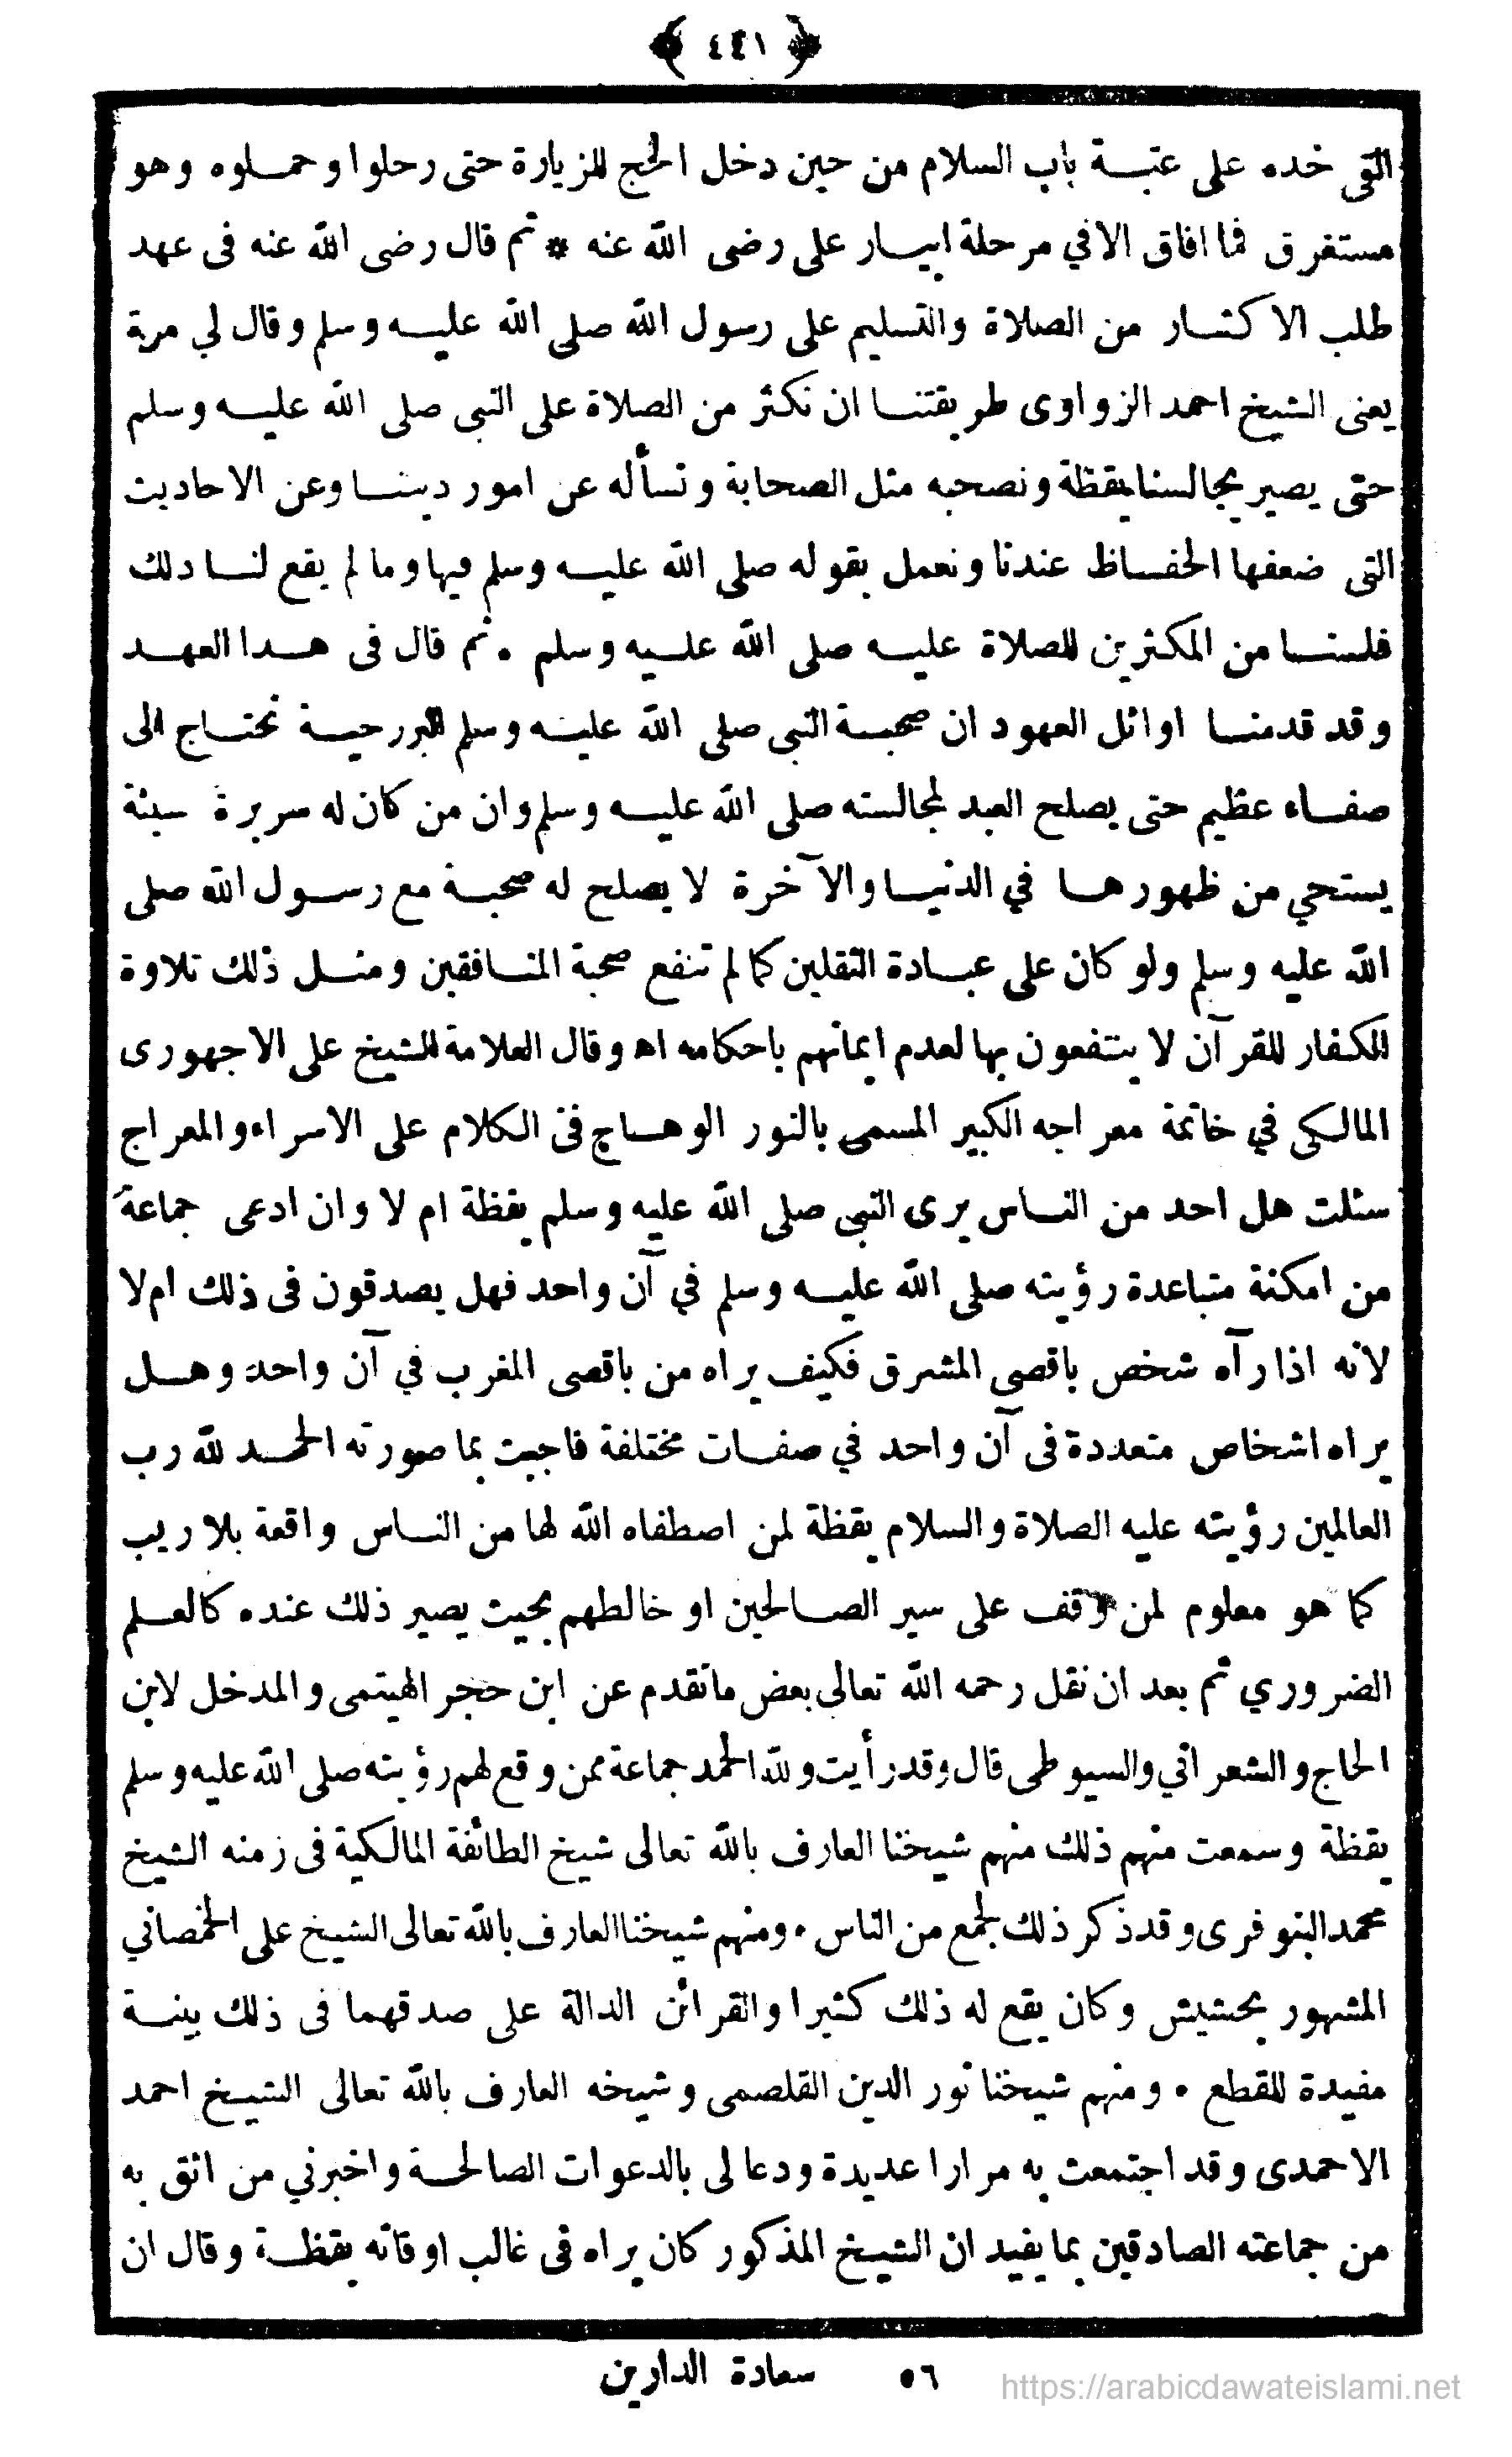 ﴿ ٤٤١ ﴾
القى خده على عتبة باب السلام من حين دخل الحج للزيارة حتى رحلوا وحملوه وهو
مستغرق فما افاق الا في مرحلة ابيار على رضى الله عنه * ثم قال رضى الله عنه فى عهد
طلب الاكثار من الصلاة والتسليم على رسول الله صلى الله عليه وسلم وقال لي مرة
يعنى الشيخ احمد الزواوى طريقتنا ان نكثر من الصلاة على النبى صلى الله عليه وسلم
حتى يصير يجالسنا يقظة ونصحبه مثل الصحابة ونسأله عن امور ديننا وعن الاحاديث
التى ضعفها الحفاظ عندنا ونعمل بقوله صلى الله عليه وسلم فيها وما لم يقع لنا ذلك
فلسنا من المكثرين للصلاة عليه صلى الله عليه وسلم . ثم قال فى هذا العهد
وقد قدمنا اوائل العهود ان صحبة النبى صلى الله عليه وسلم البرزخية تحتاج الى
صفاء عظيم حتى يصلح العبد لمجالسته صلى الله عليه وسلم وان من كان له سريرة سيئة
يستحي من ظهورها في الدنيا والآخرة لا يصلح له صحبة مع رسول الله صلى
الله عليه وسلم ولو كان على عبادة الثقلين كما لم تنفع صحبة المنافقين ومثل ذلك تلاوة
الكفار للقرآن لا ينتفعون بها لعدم ايمانهم باحكامه اه وقال العلامة الشيخ على الاجهورى
المالكى في خاتمة معراجه الكبير المسمى بالنور الوهاج فى الكلام على الاسراء والمعراج
سئلت هل احد من الناس يرى النبى صلى الله عليه وسلم يقظة ام لا وان ادعى جماعة
من امكنة متباعدة رؤيته صلى الله عليه وسلم في آن واحد فهل يصدقون فى ذلك ام لا
لانه اذا رآه شخص باقصى المشرق فكيف يراه من باقصى المغرب في آن واحد وهل
يراه اشخاص متعددة فى آن واحد في صفات مختلفة فاجبت بما صورته الحمد لله رب
العالمين رؤيته عليه الصلاة والسلام يقظة لمن اصطفاه الله لها من الناس واقعة بلا ريب
كما هو معلوم لمن وقف على سير الصالحين او خالطهم بحيث يصير ذلك عنده كالعلم
الضروري ثم بعد ان نقل رحمه الله تعالى بعض ما تقدم عن ابن حجر الهيتمى والمدخل لابن
الحاج والشعراني والسيوطى قال وقد رأيت ولله الحمد جماعة ممن وقع لهم رؤيته صلى الله عليه وسلم
يقظة وسمعت منهم ذلك منهم شيخنا العارف بالله تعالى شيخ الطائفة المالكية فى زمنه الشيخ
محمد البنوفرى وقد ذكر ذلك لجمع من الناس . ومنهم شيخنا العارف بالله تعالى الشيخ على الخمصاني
المشهور بحشيش وكان يقع له ذلك كثيرا والقرائن الدالة على صدقهما فى ذلك بينة
مفيدة للقطع . ومنهم شيخنا نور الدين القلصمى وشيخه العارف بالله تعالى الشيخ احمد
الاحمدى وقد اجتمعت به مرارا عديدة ودعا لى بالدعوات الصالحة واخبرني من اثق به
من جماعته الصادقين بما يفيد ان الشيخ المذكور كان يراه فى غالب اوقاته يقظة وقال ان
٥٦ سعادة الدارين
https://arabicdawateislami.net